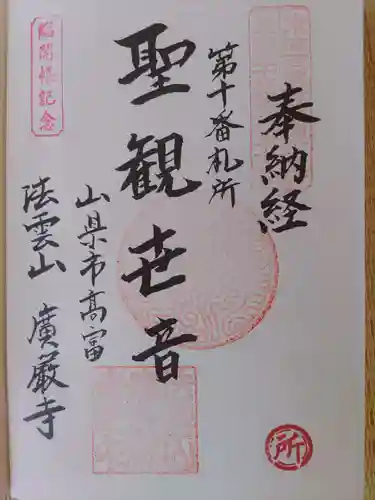 奉納経
第十番札所
聖観世音
山県市高富
法雲山 廣厳寺
臨開帳記念
所